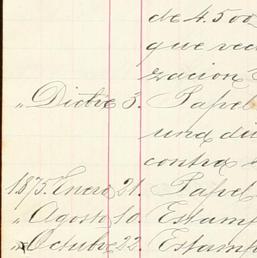 de 4.500
que ven
zacion
" Dictre 3. Papel
una di
contra
1875. Enero 21. Papel
" Agosto 10. Estamp
" Octubre 22. Estamp